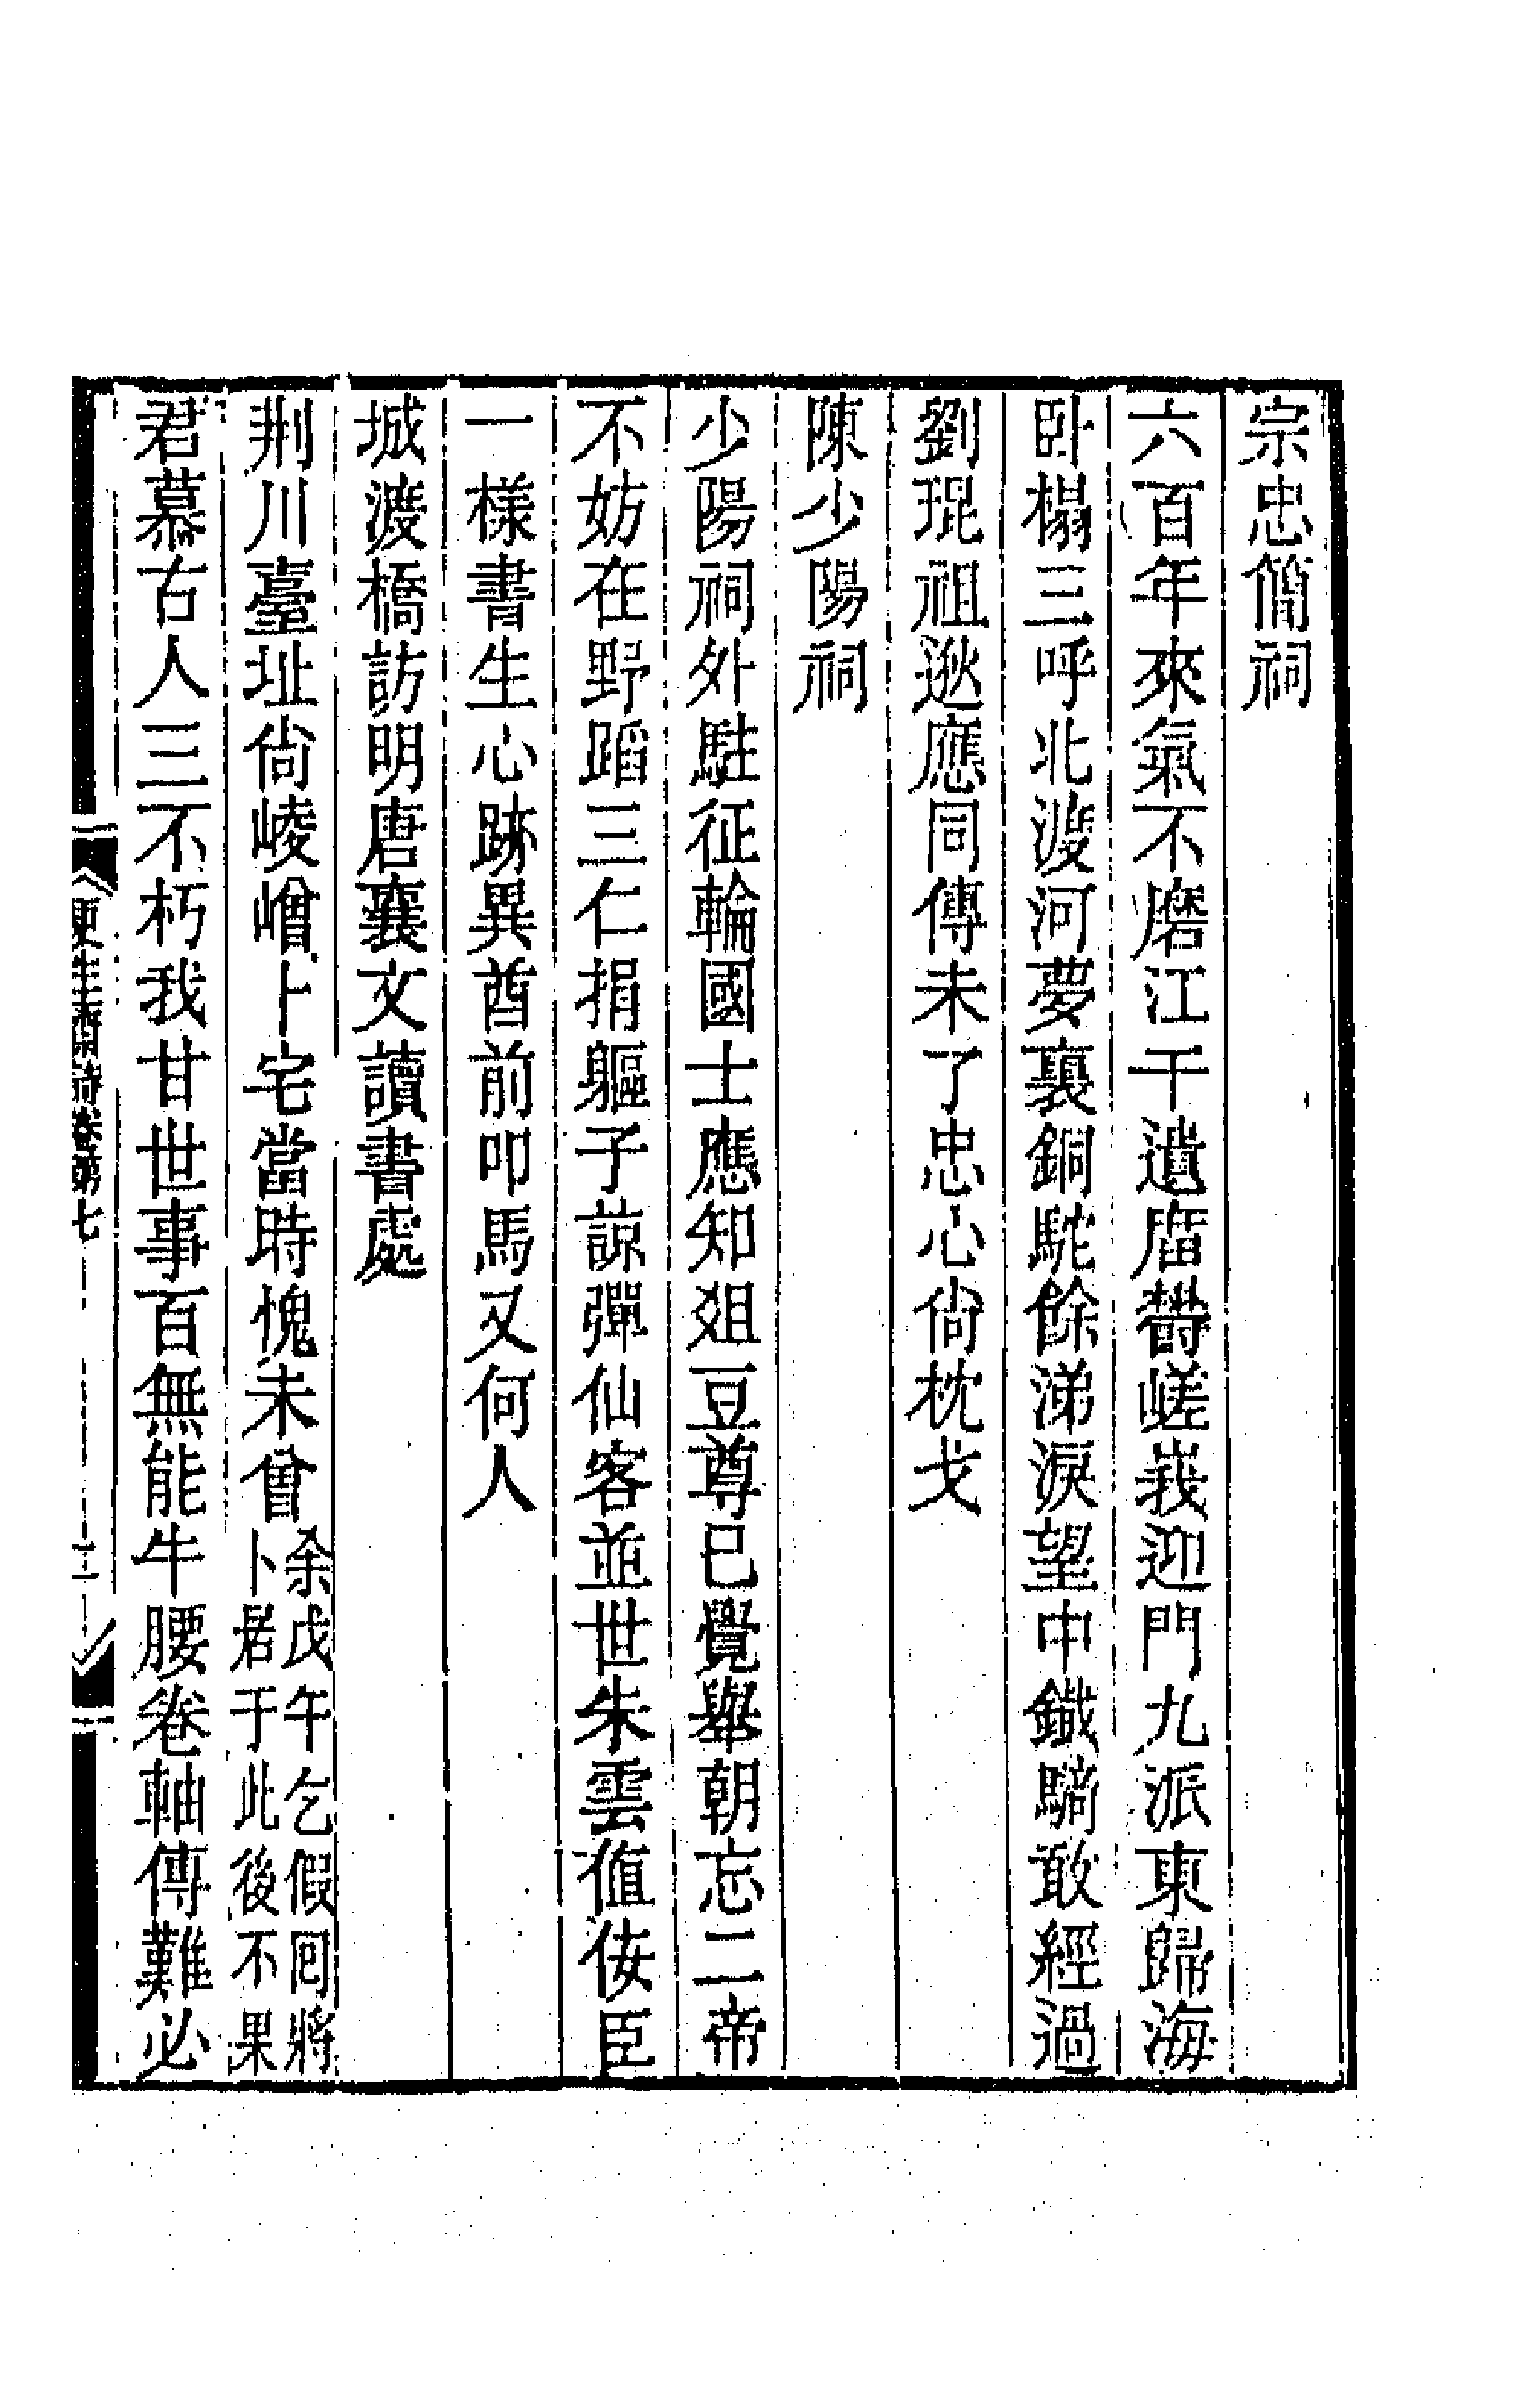 宗忠簡祠
六百年來氣不磨江干遺庿欝嵯峩迎門九派東歸海
卧榻三呼北渡河夢裏銅駝餘涕淚望中鐵騎敢經過
劉琨祖逖應同傳未了忠心尙枕戈
陳少陽祠
少陽祠外駐征輪國士應知俎豆尊已覺舉朝忘二帝
不妨在野蹈三仁捐軀子諒彈仙客並世朱雲値侫臣
一樣書生心跡異酋前叩馬又何人
城渡橋訪明唐襄文讀書處
荆川臺址尙崚嶒卜宅當時愧未曾
余戊午乞假囘將
卜居于此後不果
君慕古人三不朽我甘世事百無能牛腰卷軸傳難必
更生齋詩卷第七